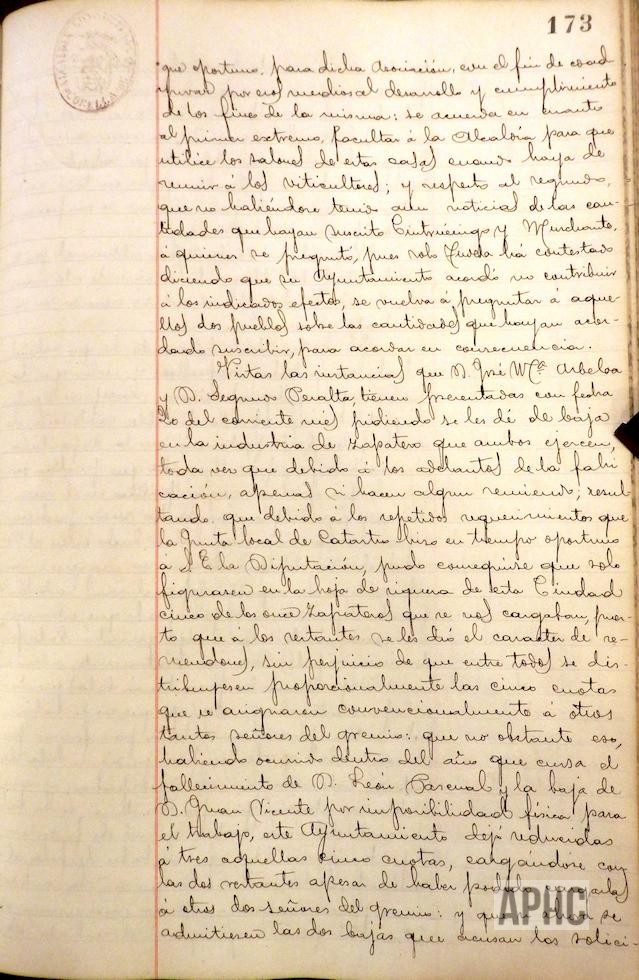 173
que oportuno, para dicha Asociación, con el fin de coad
yuvar por esos medios al desarrollo y cumplimiento
de los fines de la misma: se acuerda en cuanto
al primer extremo, facultar á la Alcaldía para que
utilice los salones de estas casas cuando haya de
reunir á los viticultores; y respecto al segundo,
que no habiéndose tenido aun noticias de las can-
tidades que hayan suscrito Cintruénigo y Murchante,
á quienes se preguntó, pues solo Tudela há contestado
diciendo que su Ayuntamiento acordó no contribuir
á los indicados efectos, se vuelva á preguntar á aque-
llos dos pueblos sobre las cantidades que hayan acor-
dado suscribir, para acordar en consecuencia.
Vistas las instancias que D. José Mª Arbeloa
y D. Segundo Peralta, tienen presentadas con fecha
20 del corriente mes pidiendo se les dé de baja
en la industria de zapatero que ambos ejercen,
toda vez que debido á los adelantos de la fabri
cación, apenas si hacen algun remiendo; resul
tando que debido á los repetidos requerimientos que
la Junta local de Catastro hizo en tiempo oportuno
á S. E. la Diputación, pudo conseguirse que solo
figurasen en la hoja de riqueza de esta Ciudad
cinco de los once zapateros que se nos cargaban, pues-
to que á los restantes se les dió el caracter de re-
mendones, sin perjuicio de que entre todos se dis-
tribuyesen proporcionalmente las cinco cuotas
que se asignaron convencionalmente á otros
tantos señores del gremio: que no obstante eso,
habiendo ocurrido dentro del año que cursa el
fallecimiento de D. León Pascual y la baja de
D. Juan Vicente por imposibilidad física para
el trabajo, este Ayuntamiento dejó reducidas
á tres aquellas cinco cuotas, cargándose con
las dos restantes apesar de haber podido cargarlas
á otros dos señores del gremio: y que si ahora se
admitiesen las dos bajas que acusan los solici-
APHC